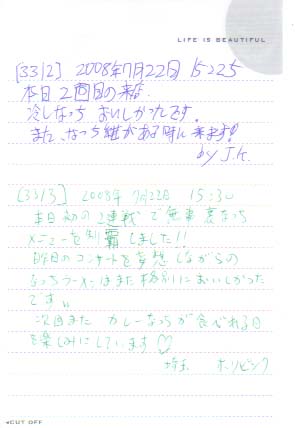 LIFE IS BEAUTIFUL
[3312] 2008年7月22日 15:25
本日2回目の来
冷しなっち おいしかったです。
また、なっち
by J.K.
[3313] 2008年 7月22日 15:30
本日初の2連戦で無事裏なっち
メニューを制覇しました!!
昨日のコンサートを夢想しながらの
なっちラーメンはまた格別においしかった
です。
次回また カレーなっちが食べれる日
を楽しみにしています♡
埼玉 ホーリーピンク
CUT OFF